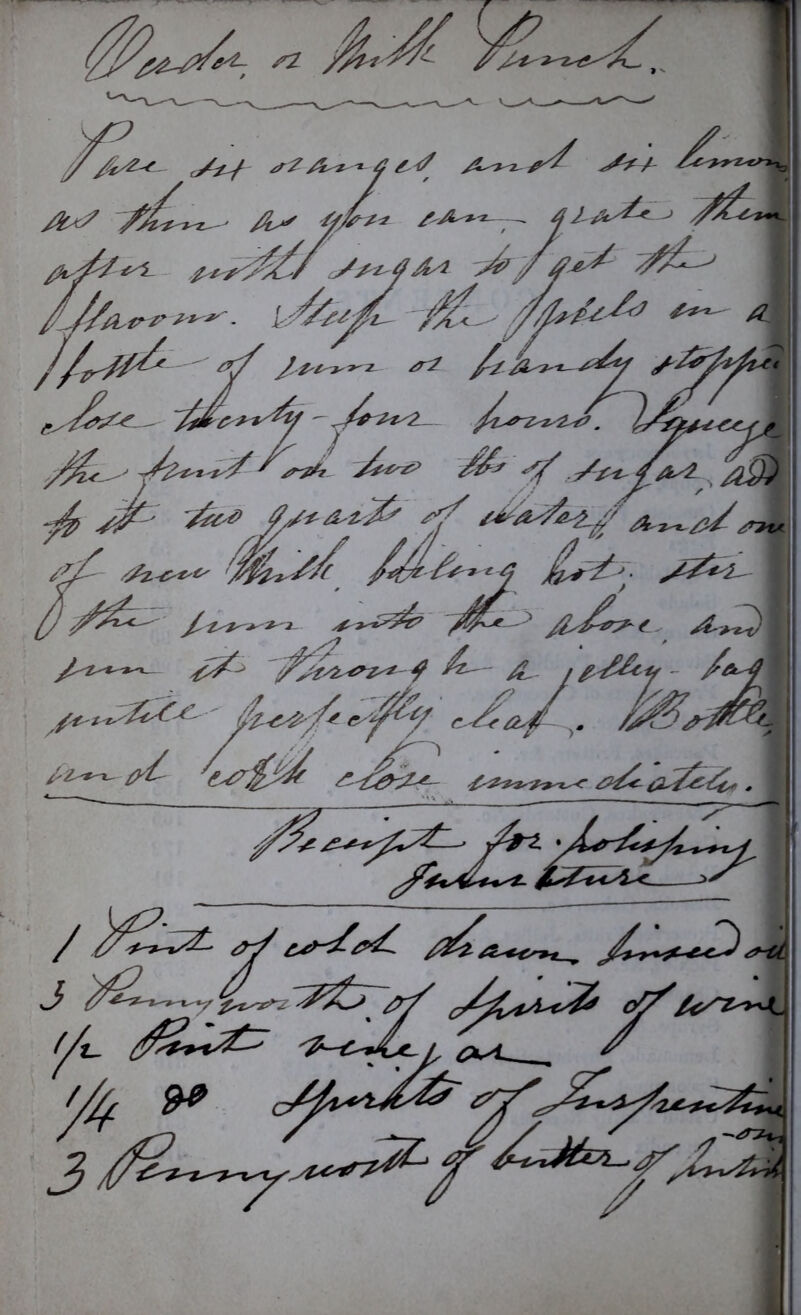 Verder, or Milk Punch.
Pare six oranges, and six lemons,
as thin as you can, grate them
after with sugar to get the
flavour. Steep the peels in a
bottle of rum or brandy stopped
close twenty-four hours. Squeeze
the fruit on two lbs of sugar, add
to it two quarts of water, and one
of new Milk, boiling hot; stir
the rum into the above, and
run it through a jelly-bag
untill perfectly clear. Bottle,
and cork close immediately.
Receipt for polishing
Furnuture
1 Pint of cold drawn linseed oil
3 Pennyworth of Spirits of wine
1/2 Pint vinegar
1/4 do Spirits of Turpentine
3 Pennyworth of butter of Antim
-ony